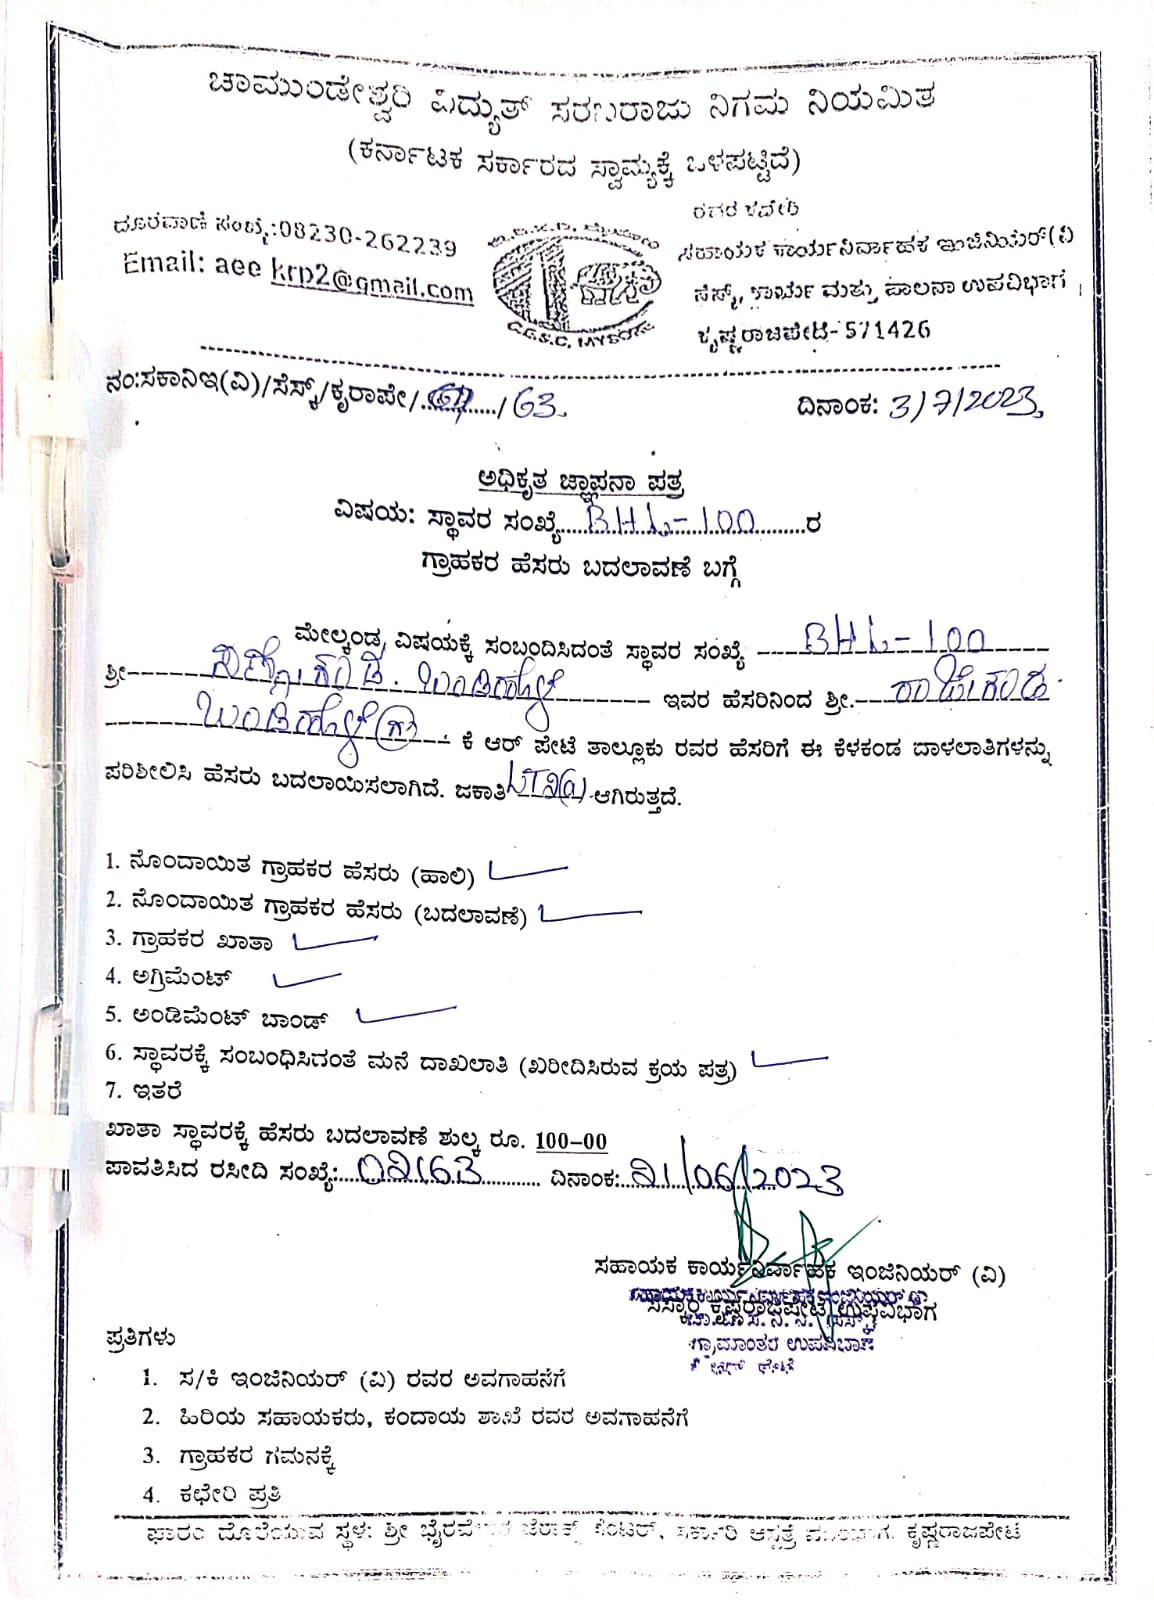 ಚಾಮುಂಡೇಶ್ವರಿ ವಿದ್ಯುತ್ ಸರಬರಾಜು ನಿಗಮ ನಿಯಮಿತ
(ಕರ್ನಾಟಕ ಸರ್ಕಾರದ ಸ್ವಾಮ್ಯಕ್ಕೆ ಒಳಪಟ್ಟಿದೆ)
ದೂರವಾಣಿ ಸಂಖ್ಯೆ:08230-262239
Email: aee krp2@gmail.com
C.E.S.C, MYSORE
ರವರ ಕಛೇರಿ
ಸಹಾಯಕ ಕಾರ್ಯನಿರ್ವಾಹಕ ಇಂಜಿನಿಯರ್(ವಿ
ಸೆಸ್ಕ್, ಕಾರ್ಯ ಮತ್ತು ಪಾಲನಾ ಉಪವಿಭಾಗ
ಕೃಷ್ಣರಾಜಪೇಟೆ- 571426
ನಂ:ಸಕಾನಿಇ(ವಿ)/ಸೆಸ್ಕ್/ಕೃರಾಪೇ/............/ 63.
ದಿನಾಂಕ: 3/7/2023
ಅಧಿಕೃತ ಜ್ಞಾಪನಾ ಪತ್ರ
ವಿಷಯ: ಸ್ಥಾವರ ಸಂಖ್ಯೆ.....BHL-100..........ರ
ಗ್ರಾಹಕರ ಹೆಸರು ಬದಲಾವಣೆ ಬಗ್ಗೆ
ಮೇಲ್ಕಂಡ ವಿಷಯಕ್ಕೆ ಸಂಬಂದಿಸಿದಂತೆ ಸ್ಥಾವರ ಸಂಖ್ಯೆ BHL-100
ಶ್ರೀ ಬಂಡಿಹೊಳೆ ಇವರ ಹೆಸರಿನಿಂದ ಶ್ರೀ.
ಬಂಡಿಹೊಳೆ ಕೆ ಆರ್ ಪೇಟೆ ತಾಲ್ಲೂಕು ರವರ ಹೆಸರಿಗೆ ಈ ಕೆಳಕಂಡ ದಾಳಲಾತಿಗಳನ್ನು
ಪರಿಶೀಲಿಸಿ ಹೆಸರು ಬದಲಾಯಿಸಲಾಗಿದೆ. ಜಕಾತಿ ಆಗಿರುತ್ತದೆ.
1. ನೊಂದಾಯಿತ ಗ್ರಾಹಕರ ಹೆಸರು (ಹಾಲಿ)
2. ನೊಂದಾಯಿತ ಗ್ರಾಹಕರ ಹೆಸರು (ಬದಲಾವಣೆ)
3. ಗ್ರಾಹಕರ ಖಾತಾ
4. ಅಗ್ರಿಮೆಂಟ್
5. ಅಂಡಿಮೆಂಟ್ ಬಾಂಡ್
6. ಸ್ಥಾವರಕ್ಕೆ ಸಂಬಂಧಿಸಿದಂತೆ ಮನೆ ದಾಖಲಾತಿ (ಖರೀದಿಸಿರುವ ಕ್ರಯ ಪತ್ರ)
7. ಇತರೆ
ಖಾತಾ ಸ್ಥಾವರಕ್ಕೆ ಹೆಸರು ಬದಲಾವಣೆ ಶುಲ್ಕ ರೂ. 100-00
ಪಾವತಿಸಿದ ರಸೀದಿ ಸಂಖ್ಯೆ:...02163........... ದಿನಾಂಕ:21/06/2023
ಸಹಾಯಕ ಕಾರ್ಯನಿರ್ವಾಹಕ ಇಂಜಿನಿಯರ್ (ವಿ)
ಕೃಷ್ಣರಾಜಪೇಟೆ ಉಪವಿಭಾಗ
ಗ್ರಾಮಾಂತರ ಉಪವಿಭಾಗ
ಪ್ರತಿಗಳು
1. ಸ/ಕಿ ಇಂಜಿನಿಯರ್ (ವಿ) ರವರ ಅವಗಾಹನೆಗೆ
2. ಹಿರಿಯ ಸಹಾಯಕರು, ಕಂದಾಯ ಶಾಖೆ ರವರ ಅವಗಾಹನೆಗೆ
3. ಗ್ರಾಹಕರ ಗಮನಕ್ಕೆ
4. ಕಛೇರಿ ಪ್ರತಿ
ಫಾರಂ ದೊರೆಯುವ ಸ್ಥಳ: ಶ್ರೀ ಜೆರಾಕ್ಸ್ ಸೆಂಟರ್, ಸರ್ಕಾರಿ ಆಸ್ಪತ್ರೆ ಮುಂಭಾಗ. ಕೃಷ್ಣರಾಜಪೇಟೆ